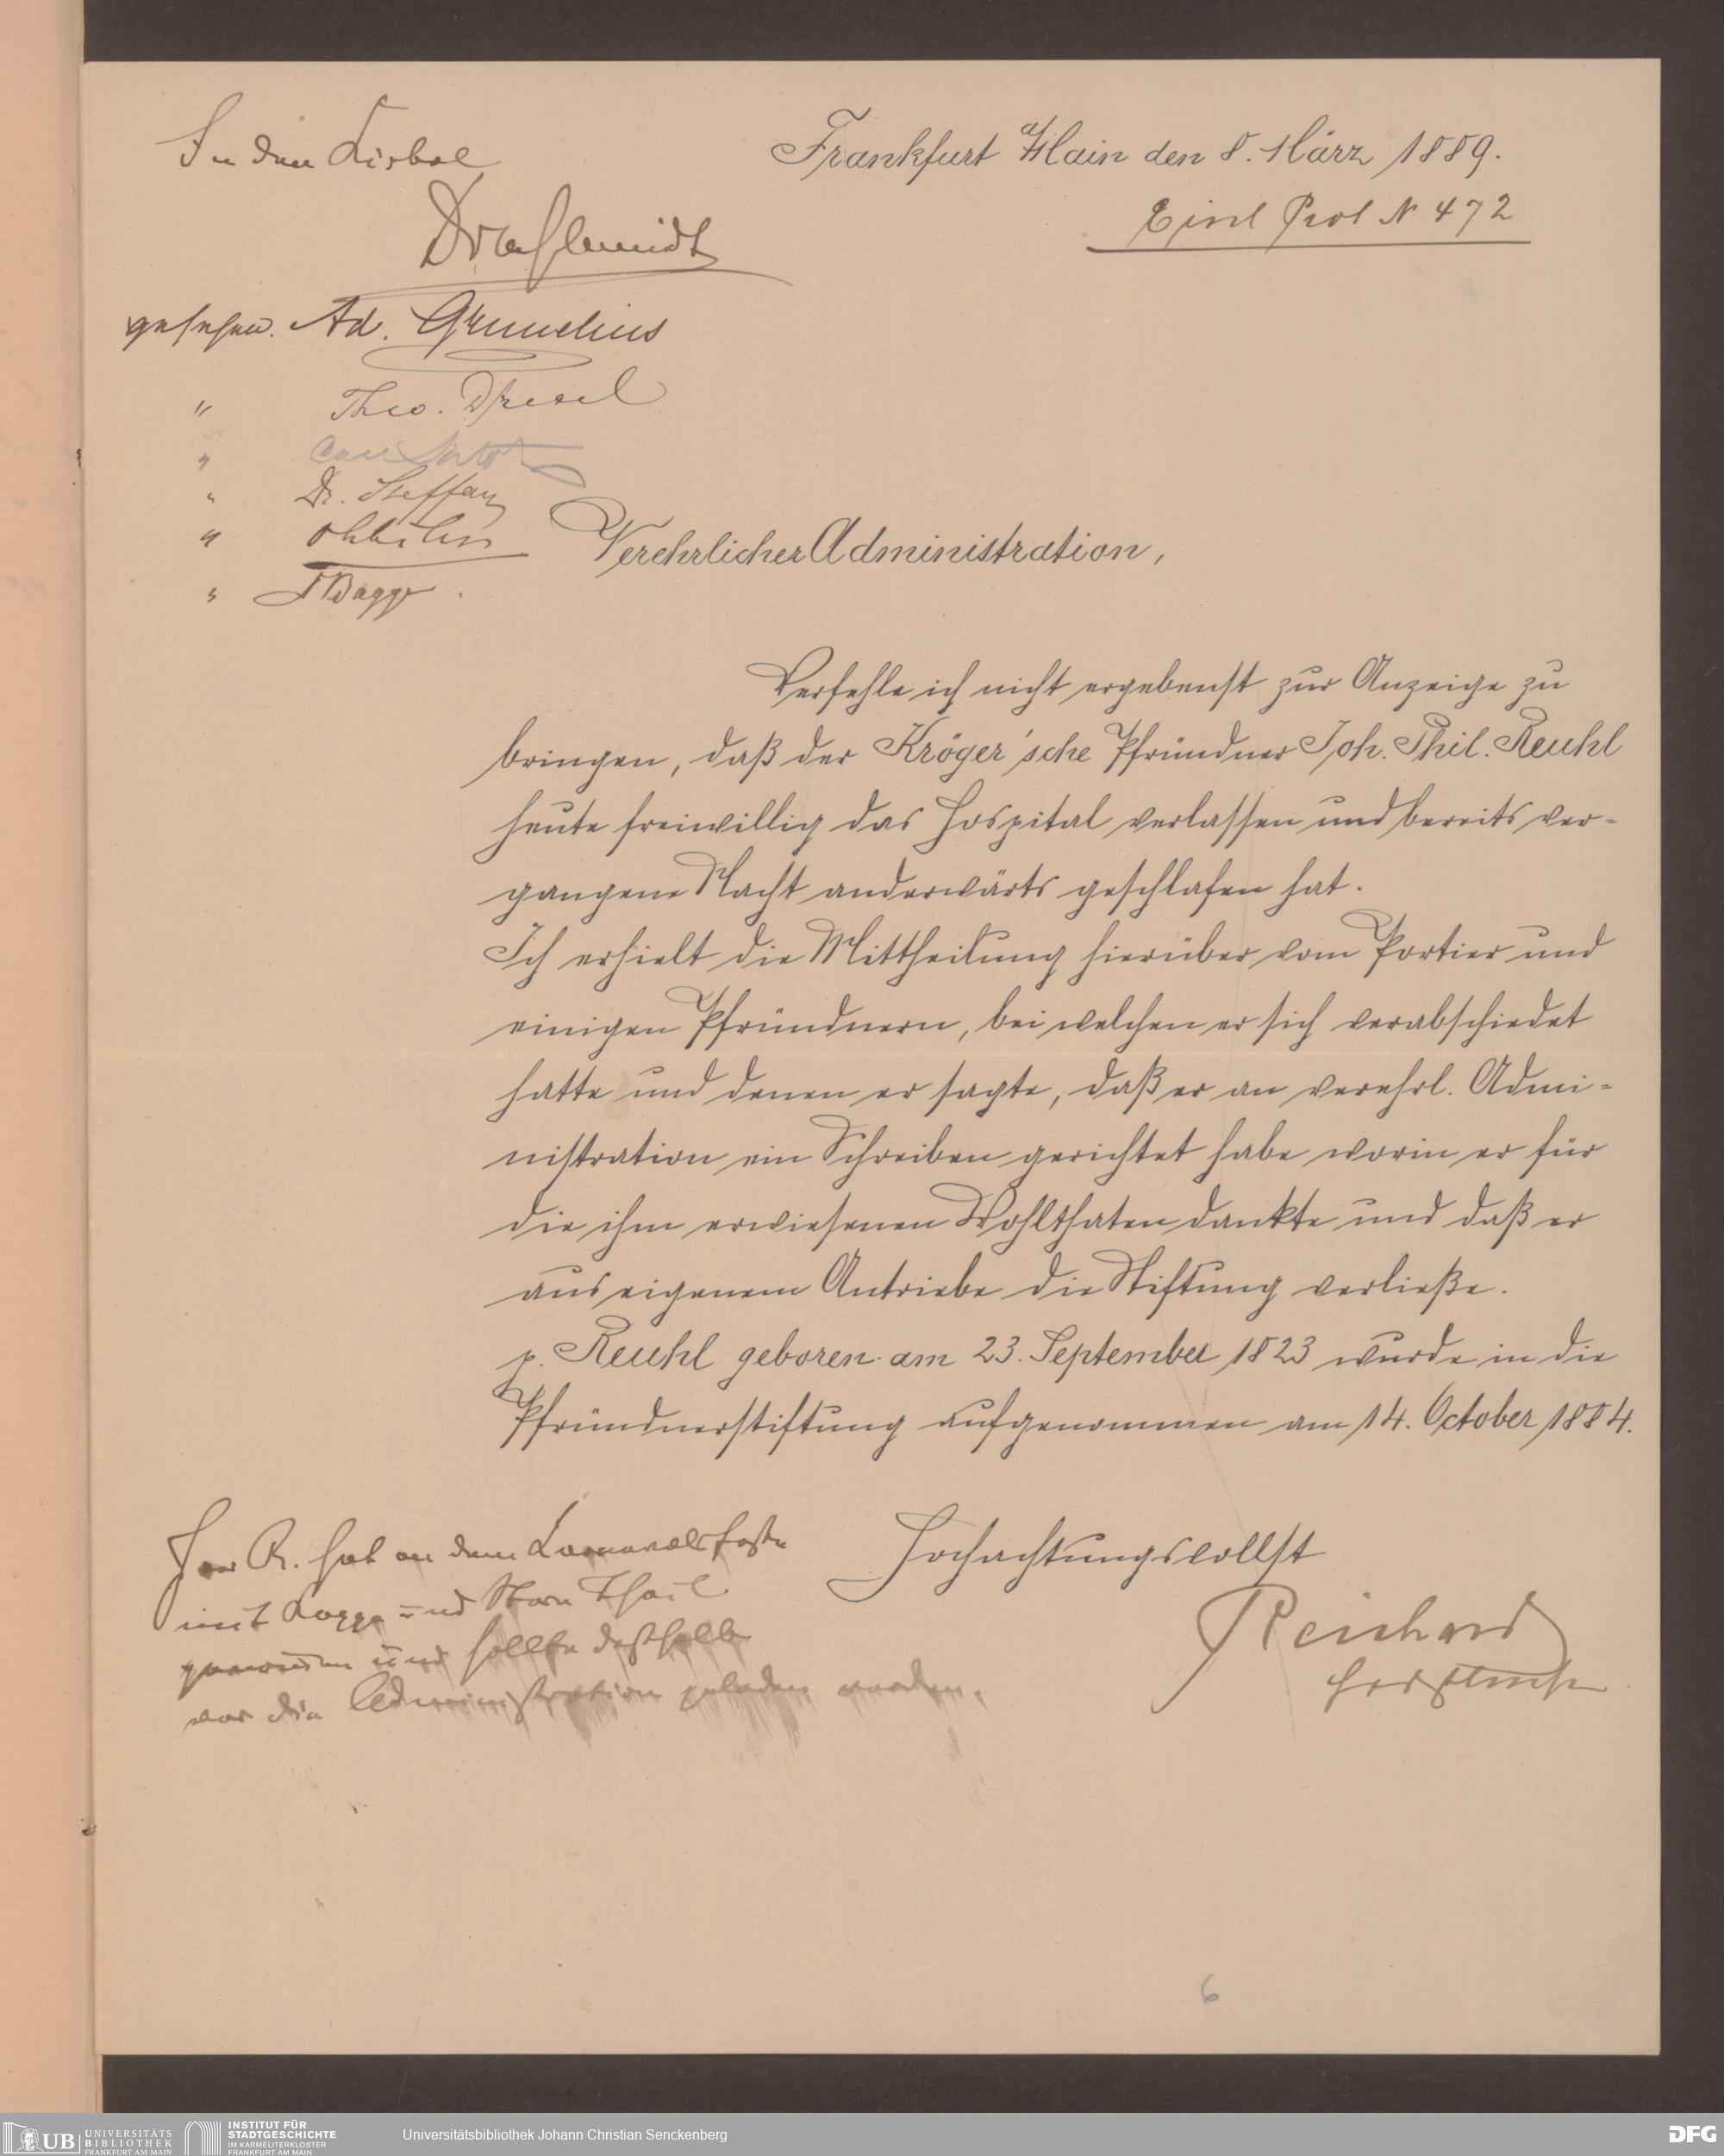 In den Zirkel
Frankfurt a/Main den 8. März 1889.
Dr. de Schmidt
Einl Prot N 472
gesehen. Ad. Grunelius
" Theo. Drexel
"
" Dr. Steffan
"
"
Verehrlicher Administration,
Verfehle ich nicht ergebenst zur Anzeige zu
bringen, daß der Kröger'sche Pfründner Joh. Phil. Reuhl
heute freiwillig das Hospital verlassen und bereits ver-
gangene Nacht anderwärts geschlafen hat.
Ich erhielt die Mittheilung hierüber vom Portier und
einigen Pfründnern, bei welchen er sich verabschiedet
hatte und denen er sagte, daß er an verehrl. Admi-
nistration ein Schreiben gerichtet habe worin er für
die ihm erwiesenen Wohlthaten dankte und daß er
aus eigenem Antriebe die Stiftung verließe.
p. Reuhl geboren am 23. September 1823 wurde in die
Pfründnerstiftung aufgenommen am 14. October 1884.
Hochachtungsvollst
Reichard
Hosptmstr
Herr R. hat an dem Karnevalsfeste
mit Kappe und Stern Theil
genommen und sollte deßhalb
vor die Administration geladen werden.
6
UB UNIVERSITÄTS
BIBLIOTHEK
FRANKFURT AM MAIN
INSTITUT FÜR
STADTGESCHICHTE
IM KARMELITERKLOSTER
FRANKFURT AM MAIN
Universitätsbibliothek Johann Christian Senckenberg
DFG